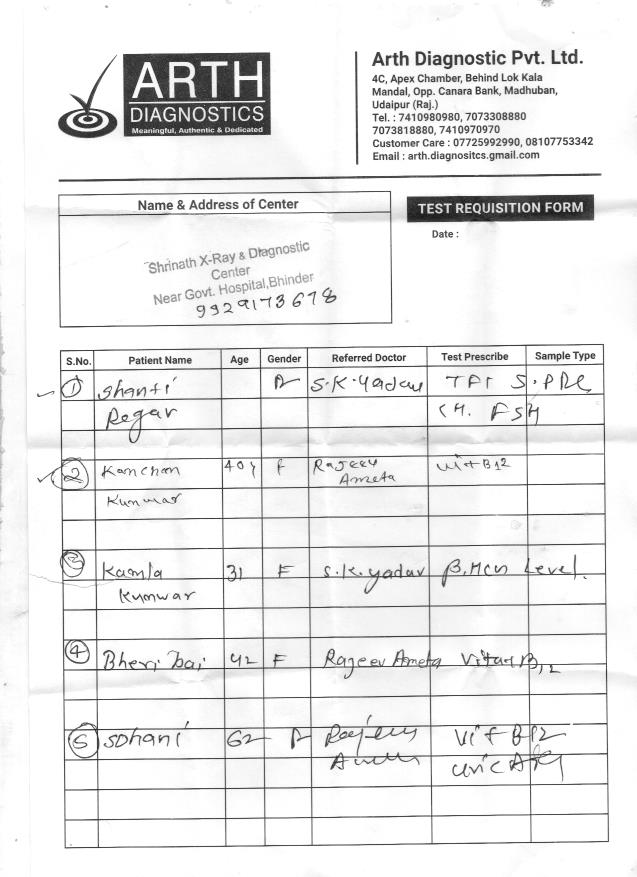 ARTH
DIAGNOSTICS
Meaningful, Authentic & Dedicated
Arth Diagnostic Pvt. Ltd.
4C, Apex Chamber, Behind Lok Kala
Mandal, Opp. Canara Bank, Madhuban,
Udaipur (Raj.)
Tel. : 7410980980, 7073308880
7073818880, 7410970970
Customer Care : 07725992990, 08107753342
Email : arth.diagnositcs.gmail.com
Name & Address of Center
Shrinath X-Ray & Diagnostic
Center
Near Govt. Hospital,Bhinder
9929173678
TEST REQUISITION FORM
Date :
S.No. Patient Name Age Gender Referred Doctor Test Prescribe Sample Type
1 Shanti S.K.Yadav S.PRL
Regar LH. FSH
2 Kanchan 40y F Rajeev Vit B12
Kunwar Ameta
3 Kamla 31 F S.K.yadav β.HCG Level.
Kunwar
4 Bheri bai 42 F Rajeev Ameta B12
5 Sohani 62 Rajeev Vit B12
Uric